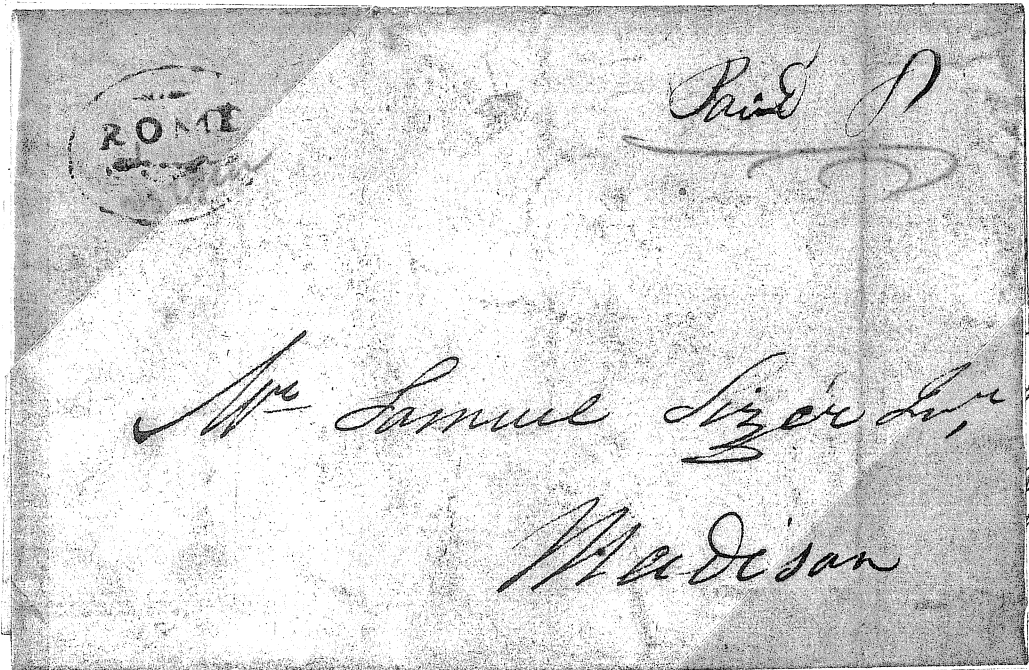 ROME
Paid 8
Mr Samuel Sizer Jur,
Madison